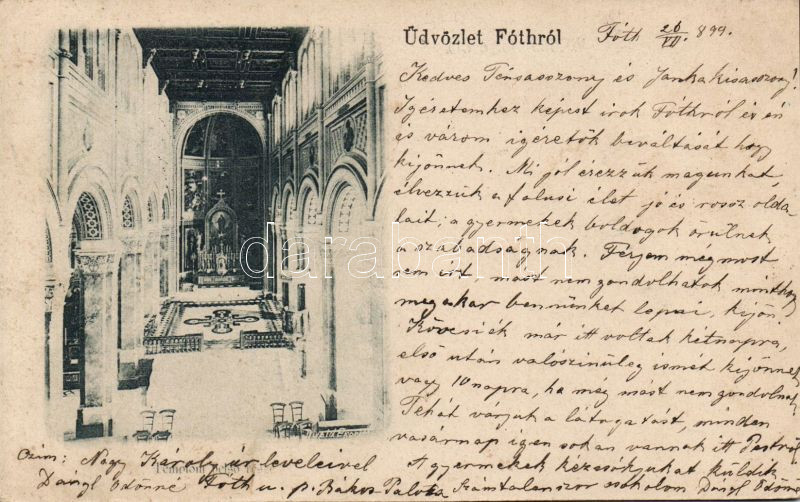 Üdvözlet Fóthról
Fóth 26/VII. 899.
Kedves Társasszony és Janka kisasszony!
Igéretemhez képest irok Fóthról és én
is várom igéretök beváltását hogy
kijönnek. Mi jól érezzük magunkat,
élvezzük a falusi élet jó és rossz olda
lait; a gyermekek boldogok örülnek
a szabadságnak. Férjem még most
sem irt, mást nem gondolhatok minthogy
meg akar bennünket lepni, kijön.
Kövesiék már itt voltak két napra,
első után valószinüleg ismét kijönnek
vagy 10 napra, ha még mást nem gondolnak
Tehát várjuk a látogatást, minden
vasárnap igen sokan vannak itt Pestről
A gyermekek kézcsókjukat küldik
Számtalanszor csókolom Dángl Ödönné
Czím: Nagy Károly úr leveleivel
Dángl Ödönné Fóth u. p. Rákos Palota
darabanth